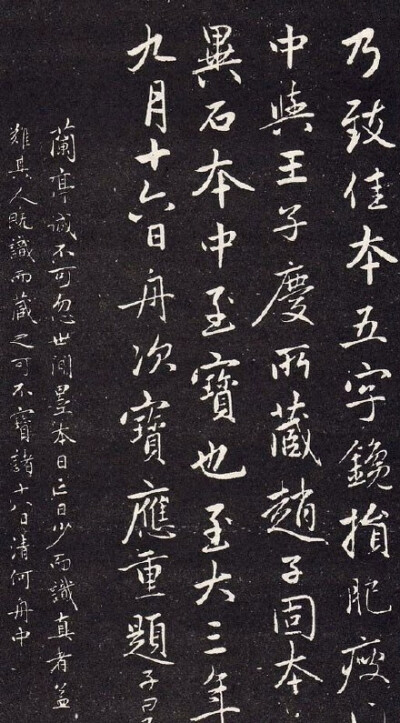 乃致佳本五字鑱損肥瘦
中與王子慶所藏趙子固本
異石本中至寶也至大三年
九月十六日舟次寶應重題子昂
蘭亭誠不可忽世間墨本日亡日少而識真者益
難其人既識而藏之可不寶諸十八日清河舟中